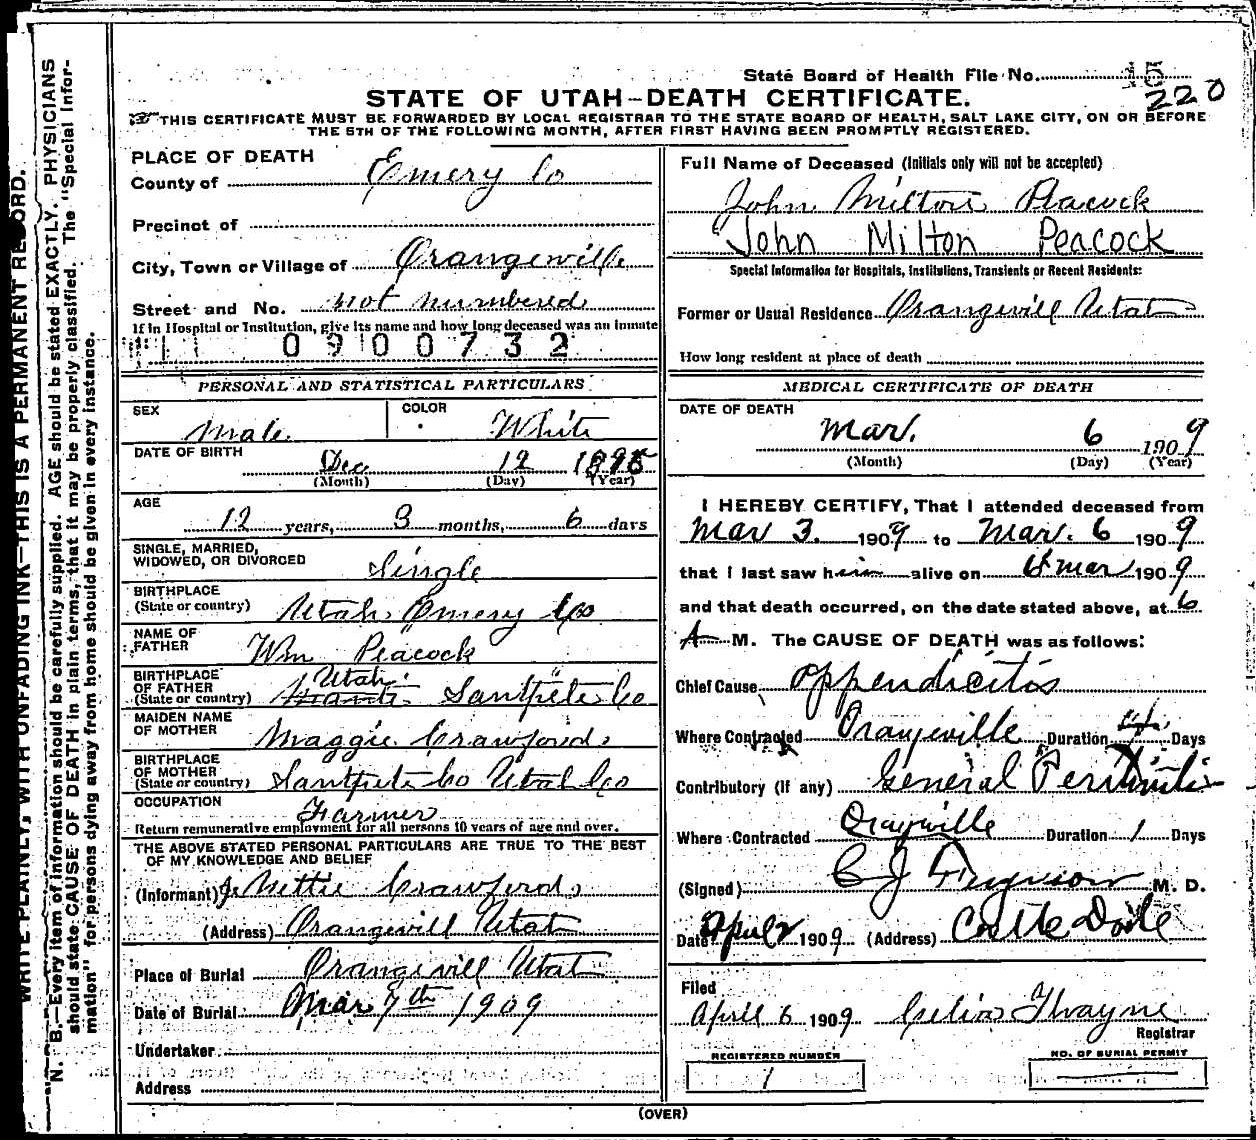 WRITE PLAINLY, WITH UNFADING INK—THIS IS A PERMANENT RECORD.
N. B.—Every item of information should be carefully supplied. AGE should be stated EXACTLY. PHYSICIANS
should state CAUSE OF DEATH in plain terms, that it may be properly classified. The "Special Infor-
mation" for persons dying away from home should be given in every instance.
State Board of Health File No. 15
220
STATE OF UTAH—DEATH CERTIFICATE.
THIS CERTIFICATE MUST BE FORWARDED BY LOCAL REGISTRAR TO THE STATE BOARD OF HEALTH, SALT LAKE CITY, ON OR BEFORE
THE 5TH OF THE FOLLOWING MONTH, AFTER FIRST HAVING BEEN PROMPTLY REGISTERED.
PLACE OF DEATH
County of Emery Co
Precinct of
City, Town or Village of Orangeville
Street and No. not numbered
If in Hospital or Institution, give its name and how long deceased was an inmate
0900732
PERSONAL AND STATISTICAL PARTICULARS
SEX Male COLOR White
DATE OF BIRTH Dec 12 1896
(Month) (Day) (Year)
AGE
12 years, 3 months, 6 days
SINGLE, MARRIED,
WIDOWED, OR DIVORCED Single
BIRTHPLACE
(State or country) Utah Emery Co
NAME OF
FATHER Wm Peacock
BIRTHPLACE
OF FATHER Utah
(State or country) Manti Santpete Co
MAIDEN NAME
OF MOTHER Maggie Crawford
BIRTHPLACE
OF MOTHER
(State or country) Santpete Co Utah Co
OCCUPATION Farmer
Return remunerative employment for all persons 10 years of age and over.
THE ABOVE STATED PERSONAL PARTICULARS ARE TRUE TO THE BEST
OF MY KNOWLEDGE AND BELIEF
(Informant) Nettie Crawford
(Address) Orangevill Utah
Place of Burial Orangevill Utah
Date of Burial Mar 7th 1909
Undertaker
Address
Full Name of Deceased (Initials only will not be accepted)
John Milton Peacock
John Milton Peacock
Special Information for Hospitals, Institutions, Transients or Recent Residents:
Former or Usual Residence Orangevill Utah
How long resident at place of death
MEDICAL CERTIFICATE OF DEATH
DATE OF DEATH
Mar. 6 1909
(Month) (Day) (Year)
I HEREBY CERTIFY, That I attended deceased from
Mar 3. 1909 to Mar. 6 1909
that I last saw him alive on 6 mar 1909
and that death occurred, on the date stated above, at 6
A M. The CAUSE OF DEATH was as follows:
Chief Cause appendicitis
Where Contracted Orangeville Duration 4 Days
Contributory (If any) General Peritonitis
Where Contracted Orangville Duration 1 Days
(Signed) C J M. D.
Date April 2 1909 (Address) Castle Dale
Filed
April 6 1909 Celia Thwayne
Registrar
REGISTERED NUMBER
1
NO. OF BURIAL PERMIT
1
(OVER)